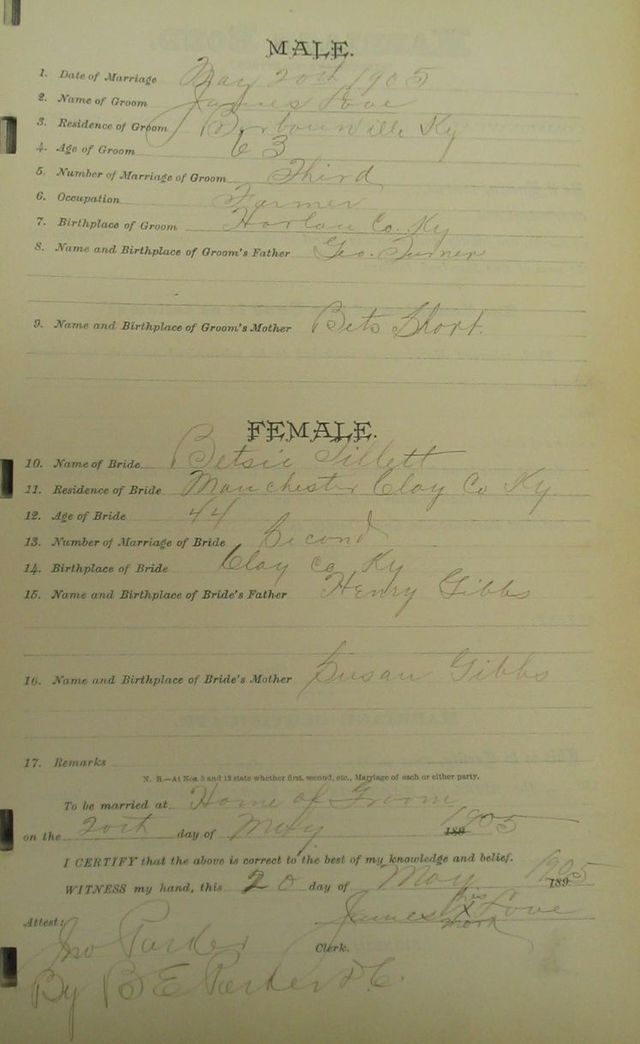 MALE.
1. Date of Marriage May 20th 1905
2. Name of Groom James Love
3. Residence of Groom Borbourville Ky
4. Age of Groom 63
5. Number of Marriage of Groom Third
6. Occupation Farmer
7. Birthplace of Groom Harlan Co. Ky
8. Name and Birthplace of Groom's Father Geo. Turner
9. Name and Birthplace of Groom's Mother Bets Short.
FEMALE.
10. Name of Bride Betsie Tillett
11. Residence of Bride Manchester Clay Co Ky.
12. Age of Bride 44
13. Number of Marriage of Bride Second
14. Birthplace of Bride Clay Co Ky
15. Name and Birthplace of Bride's Father Henry Gibbs
16. Name and Birthplace of Bride's Mother Susan Gibbs
17. Remarks
N. B.—At Nos. 5 and 13 state whether first, second, etc., Marriage of each or either party.
To be married at Home of Groom
on the 20th day of May 189 1905
I CERTIFY that the above is correct to the best of my knowledge and belief.
WITNESS my hand, this 20 day of May 189 1905
James his X mark Love
Attest:
Jno Parker Clerk.
By B E Parker D.C.